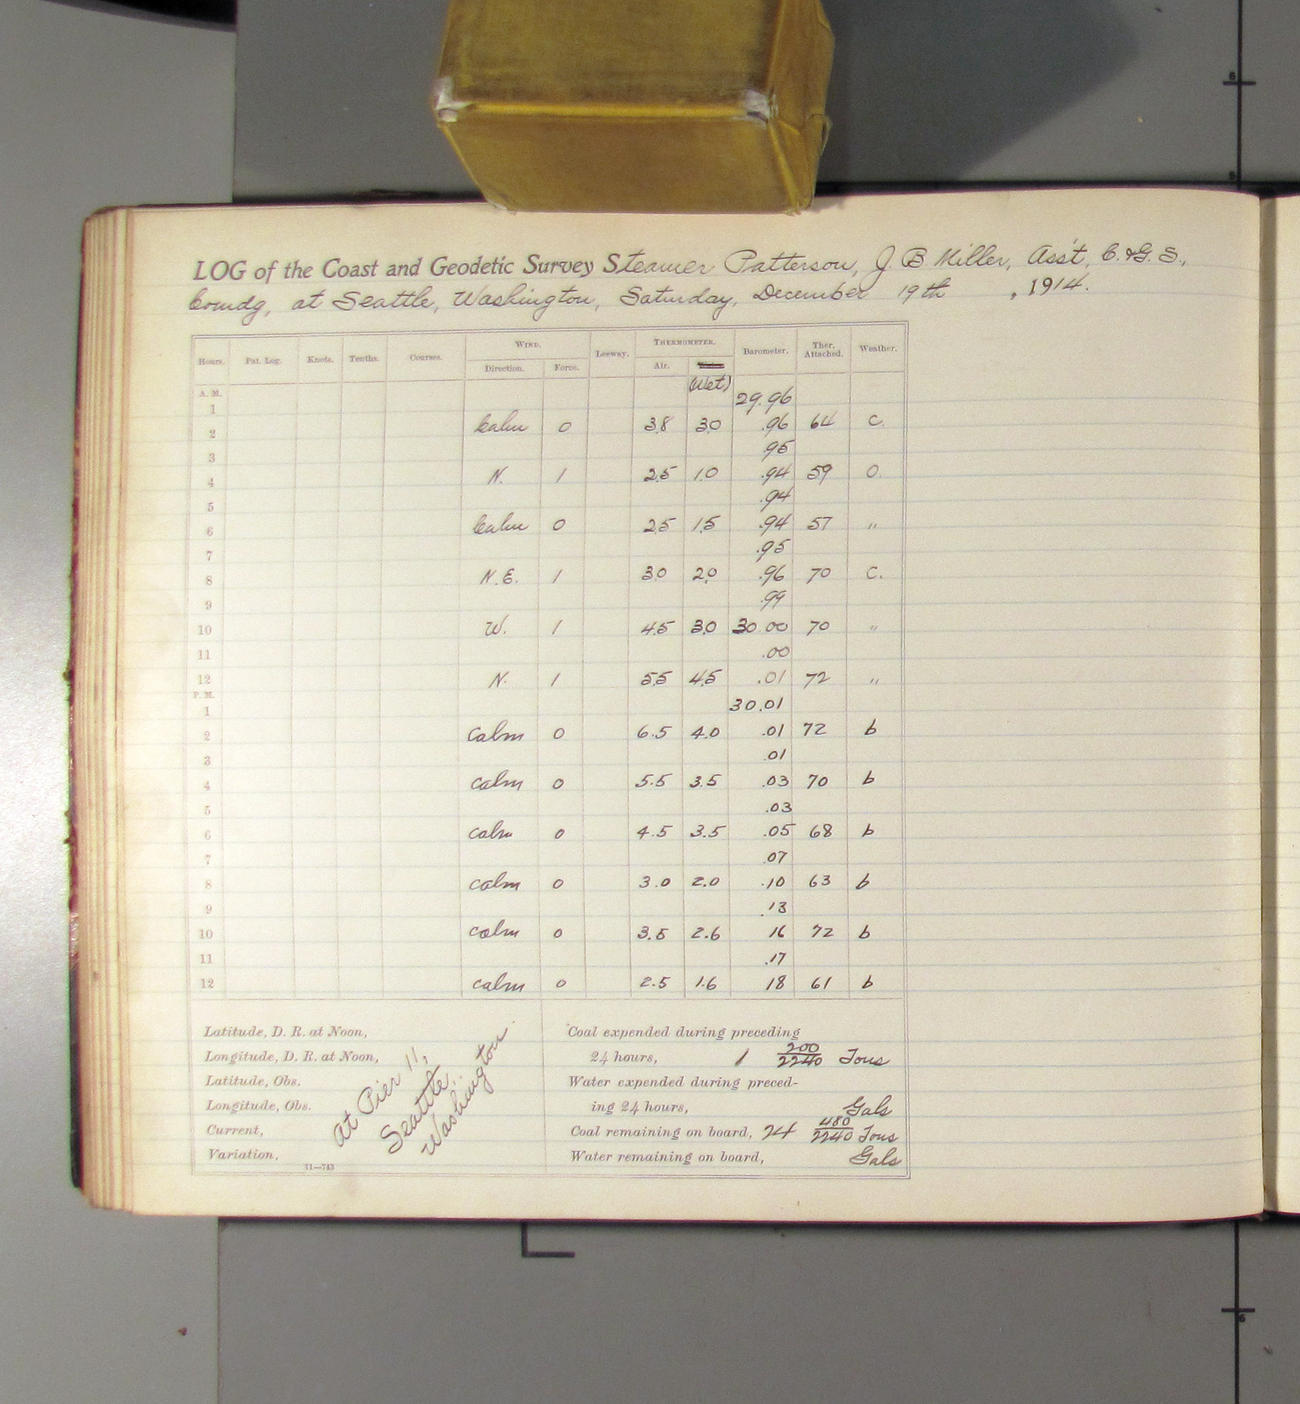 LOG of the Coast and Geodetic Survey Steamer Patterson, J. B Miller, Ass't, C. & G. S.,
Comdg, at Seattle, Washington, Saturday, December 19th, 1914.
Hours. Pat. Log. Knots. Tenths. Courses. WIND. Leeway. THERMOMETER. Barometer. Ther. Attached. Weather.
Direction. Force. Air. (Wet)
A. M.
1 29.96
2 Calm 0 3.8 3.0 .96 64 c.
3 95
4 N. 1 2.5 1.0 .94 59 O.
5 .94
6 Calm 0 2.5 1.5 .94 57 "
7 .95
8 N.E. 1 3.0 2.0 .96 70 C.
9 .99
10 W. 1 4.5 3.0 30.00 70 "
11 .00
12 N. 1 5.5 4.5 .01 72 "
P. M.
1 30.01
2 calm 0 6.5 4.0 .01 72 b
3 .01
4 calm 0 5.5 3.5 .03 70 b
5 .03
6 calm 0 4.5 3.5 .05 68 b
7 .07
8 calm 0 3.0 2.0 .10 63 b
9 .13
10 calm 0 3.5 2.6 16 72 b
11 .17
12 calm 0 2.5 1.6 18 61 b
Latitude, D. R. at Noon,
Longitude, D. R. at Noon,
Latitude, Obs.
Longitude, Obs.
Current,
Variation,
11—743
At Pier 11,
Seattle.
Washington
Coal expended during preceding
24 hours, 1 200/2240 Tons
Water expended during preced-
ing 24 hours, Gals
Coal remaining on board, 24 480/2240 Tons
Water remaining on board, Gals
6
5
6